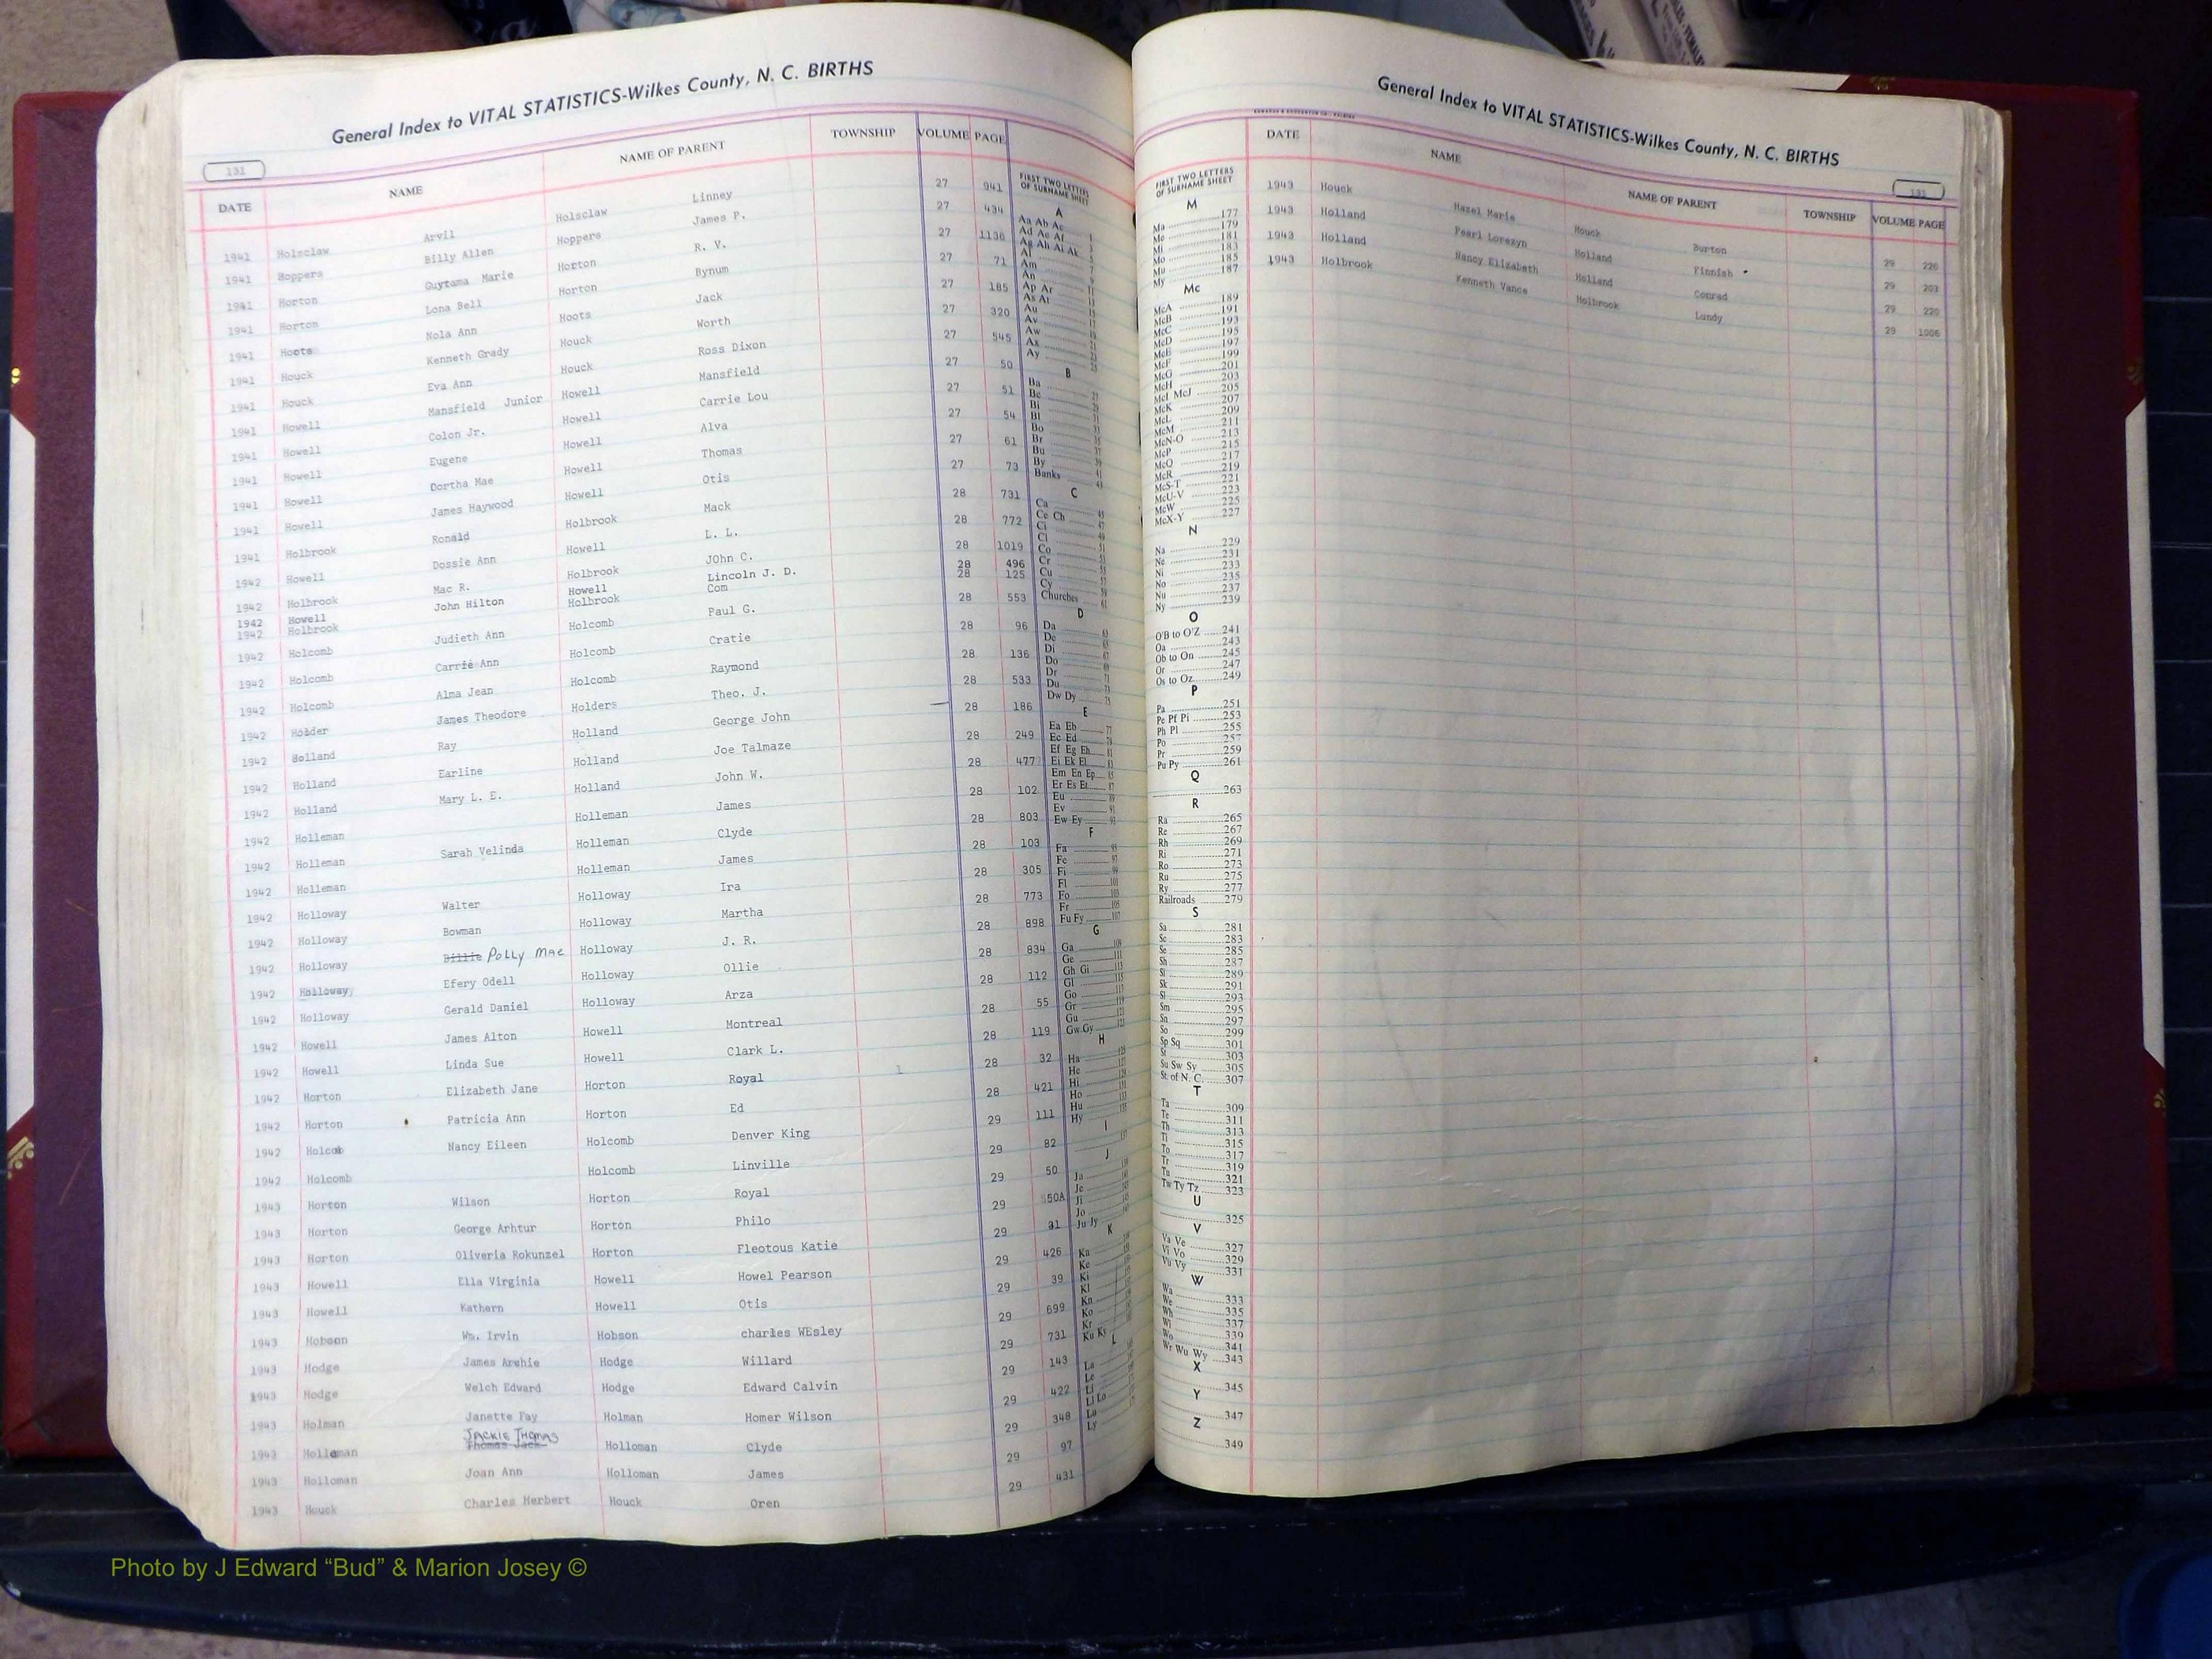 General Index to VITAL STATISTICS-Wilkes County, N. C. BIRTHS
131
DATE NAME NAME OF PARENT TOWNSHIP VOLUME PAGE
1941 Holsclaw Arvil Holsclaw Linney 27 941
1941 Hoppers Billy Allen Hoppers James P. 27 434
1941 Horton Guytama Marie Horton R. V. 27 1136
1941 Horton Lona Bell Horton Bynum 27 71
1941 Hoots Nola Ann Hoots Jack 27 185
1941 Houck Kenneth Grady Houck Worth 27 320
1941 Houck Eva Ann Houck Ross Dixon 27 545
1941 Howell Mansfield Junior Howell Mansfield 27 50
1941 Howell Colon Jr. Howell Carrie Lou 27 51
1941 Howell Eugene Howell Alva 27 54
1941 Howell Dortha Mae Howell Thomas 27 61
1941 Howell James Haywood Howell Otis 27 73
1941 Holbrook Ronald Holbrook Mack 28 731
1942 Howell Dossie Ann Howell L. L. 28 772
1942 Holbrook Mac R. Holbrook JOhn C. 28 1019
1942 Howell John Hilton Howell Lincoln J. D. 28 496
1942 Holbrook Holbrook Com 28 125
1942 Holcomb Judieth Ann Holcomb Paul G. 28 553
1942 Holcomb Carrie Ann Holcomb Cratie 28 96
1942 Holcomb Alma Jean Holcomb Raymond 28 136
1942 Holder James Theodore Holders Theo. J. 28 533
1942 Holland Ray Holland George John 28 186
1942 Holland Earline Holland Joe Talmaze 28 249
1942 Holland Mary L. E. Holland John W. 28 477
1942 Holleman Holleman James 28 102
1942 Holleman Sarah Velinda Holleman Clyde 28 803
1942 Holleman Holleman James 28 103
1942 Holloway Walter Holloway Ira 28 305
1942 Holloway Bowman Holloway Martha 28 773
1942 Holloway Billie POLLY MAE Holloway J. R. 28 898
1942 Holloway Efery Odell Holloway Ollie 28 834
1942 Holloway Gerald Daniel Holloway Arza 28 112
1942 Howell James Alton Howell Montreal 28 55
1942 Howell Linda Sue Howell Clark L. 28 119
1942 Horton Elizabeth Jane Horton Royal 28 32
1942 Horton Patricia Ann Horton Ed 28 421
1942 Holcomb Nancy Eileen Holcomb Denver King 29 111
1942 Holcomb Holcomb Linville 29 82
1943 Horton Wilson Horton Royal 29 50
1943 Horton George Arhtur Horton Philo 29
1943 Horton Oliveria Rokunzel Horton Fleotous Katie 29 31
1943 Howell Ella Virginia Howell Howel Pearson 29 426
1943 Howell Kathern Howell Otis 29 39
1943 Hobson Wm. Irvin Hobson charles WEsley 29 699
1943 Hodge James Archie Hodge Willard 29 731
1943 Hodge Welch Edward Hodge Edward Calvin 29 143
1943 Holman Janette Fay Holman Homer Wilson 29 422
1943 Holloman JACKIE THOMAS Thomas Jack Holloman Clyde 29 348
1943 Holloman Joan Ann Holloman James 29 97
1943 Houck Charles Herbert Houck Oren 29 431
FIRST TWO LETTERS
OF SURNAME SHEET
A
Aa Ab Ac
Ad Ae Af
Ag Ah Ai Ak
Al
Am
An
Ap Ar
As At
Au
Av
Aw
Ax
Ay
B
Ba
Be
Bi
Bl
Bo
Br
Bu
By
Banks
C
Ca
Ce Ch
Ci
Cl
Co
Cr
Cu
Cy
Churches
D
Da
De
Di
Do
Dr
Du
Dw Dy
E
Ea Eb
Ec Ed
Ef Eg Eh
Ei Ek El
Em En Ep
Er Es Et
Eu
Ev
Ew Ey
F
Fa
Fe
Fi
Fl
Fo
Fr
Fu Fy
G
Ga
Ge
Gh Gi
Gl
Go
Gr
Gu
Gw Gy
H
Ha
He
Hi
Ho
Hu
Hy
I
J
Ja
Je
Ji
Jo
Ju Jy
K
Ka
Ke
Ki
Kl
Kn
Ko
Kr
Ku Ky
L
La
Le
Li
Ll Lo
Lu
Ly
General Index to VITAL STATISTICS-Wilkes County, N. C. BIRTHS
131
FIRST TWO LETTERS
OF SURNAME SHEET
M
Ma 177
Me 179
Mi 181
Mo 183
Mu 185
My 187
Mc
McA 189
McB 191
McC 193
McD 195
McE 197
McF 199
McG 201
McH 203
McI McJ 205
McK 207
McL 209
McM 211
McN-O 213
McP 215
McQ 217
McR 219
McS-T 221
McU-V 223
McW 225
McX-Y 227
N
Na 229
Ne 231
Ni 233
No 235
Nu 237
Ny 239
O
O'B to O'Z 241
Oa 243
Ob to On 245
Or 247
Os to Oz 249
P
Pa 251
Pe Pf Pi 253
Ph Pl 255
Po 257
Pr 259
Pu Py 261
Q
263
R
Ra 265
Re 267
Rh 269
Ri 271
Ro 273
Ru 275
Ry 277
Railroads 279
S
Sa 281
Sc 283
Se 285
Sh 287
Si 289
Sk 291
Sl 293
Sm 295
Sn 297
So 299
Sp Sq 301
St 303
Su Sw Sy 305
St. of N. C. 307
T
Ta 309
Te 311
Th 313
Ti 315
To 317
Tr 319
Tu 321
Tw Ty Tz 323
U
325
V
Va Ve 327
Vi Vo 329
Vu Vy 331
W
Wa 333
We 335
Wh 337
Wi 339
Wo 341
Wr Wu Wy 343
X
345
Y
347
Z
349
DATE NAME NAME OF PARENT TOWNSHIP VOLUME PAGE
1943 Houck Hazel Marie Houck Burton 29 226
1943 Holland Pearl Lorezyn Holland Finnish 29 203
1943 Holland Nancy Elizabeth Holland Conrad 29 220
1943 Holbrook Kenneth Vance Holbrook Lundy 29 1006
Photo by J Edward “Bud” & Marion Josey ©